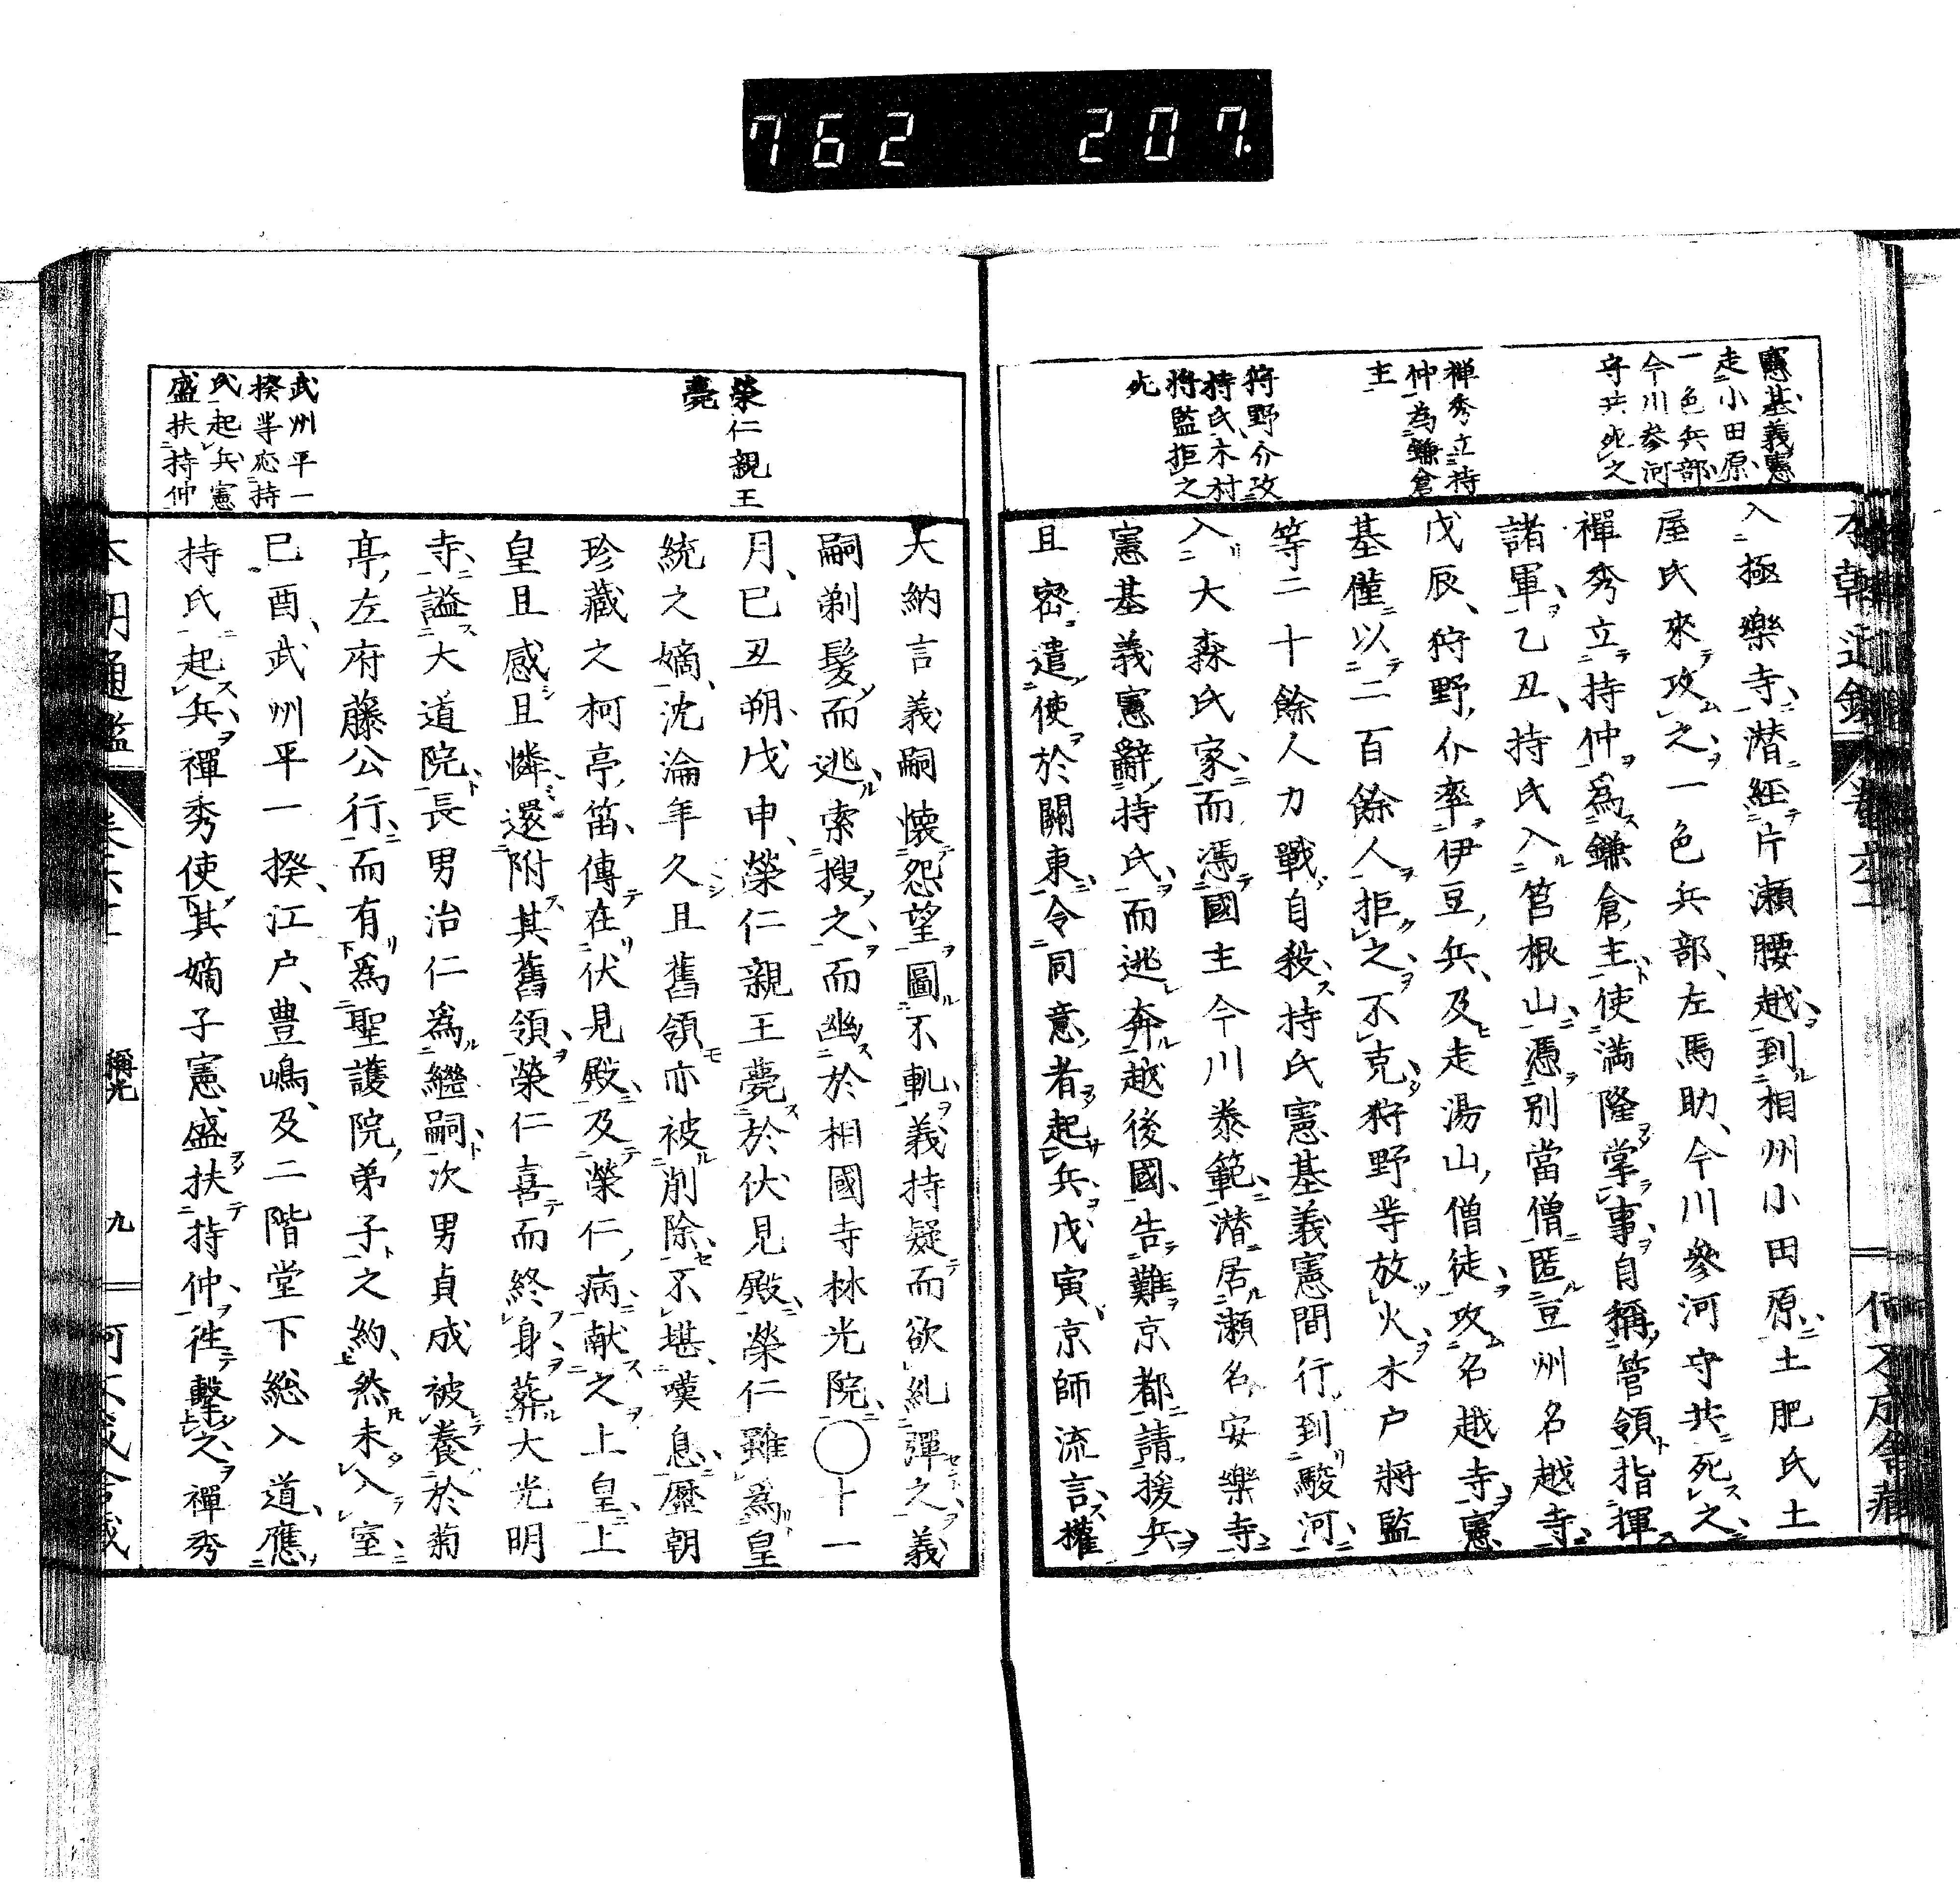 762 207.
憲基義憲
走小田原
一色兵部
今川参河
守共死之
禅秀立持
仲為鎌倉
主
狩野介攻
持氏木村
将監拒之
死
入極樂寺潜經片瀬腰越到相州小田原土肥氏土
屋氏來攻之一色兵部左馬助今川參河守共死之
禪秀立持仲爲鎌倉主使滿隆掌事自稱管領指揮
諸軍乙丑持氏入筥根山憑別當僧匿豆州名越寺
戊辰狩野介率伊豆兵及走湯山僧徒攻名越寺憲
基僅以二百餘人拒之不克狩野等放火木戸將監
等二十餘人力戰自殺持氏憲基義憲間行到駿河
入大森氏家而憑國主今川泰範潜居瀬名安樂寺
憲基義憲辭持氏而逃奔越後國告難京都請援兵
且密遣使於關東令同意者起兵戊寅京師流言權
榮仁親王
薨
武州平一
揆等応持
氏起兵憲
盛扶持仲
大納言義嗣懐怨望圖不軌義持疑而欲糺彈之義
嗣剃髪而逃索搜之而幽於相國寺林光院○十一
月己丑朔戊申榮仁親王薨於伏見殿榮仁雖爲皇
統之嫡沈淪年久且舊領亦被削除不堪嘆息歴朝
珍藏之柯亭笛傳在伏見殿及榮仁病献之上皇上
皇且感且憐還附其舊領榮仁喜而終身葬大光明
寺謚大道院長男治仁爲繼嗣次男貞成被養於菊
亭左府藤公行而有爲聖護院弟子之約然未入室
己酉武州平一揆江戸豊嶋及二階堂下総入道應
持氏起兵禪秀使其嫡子憲盛扶持仲往擊之禪秀
稱光
九